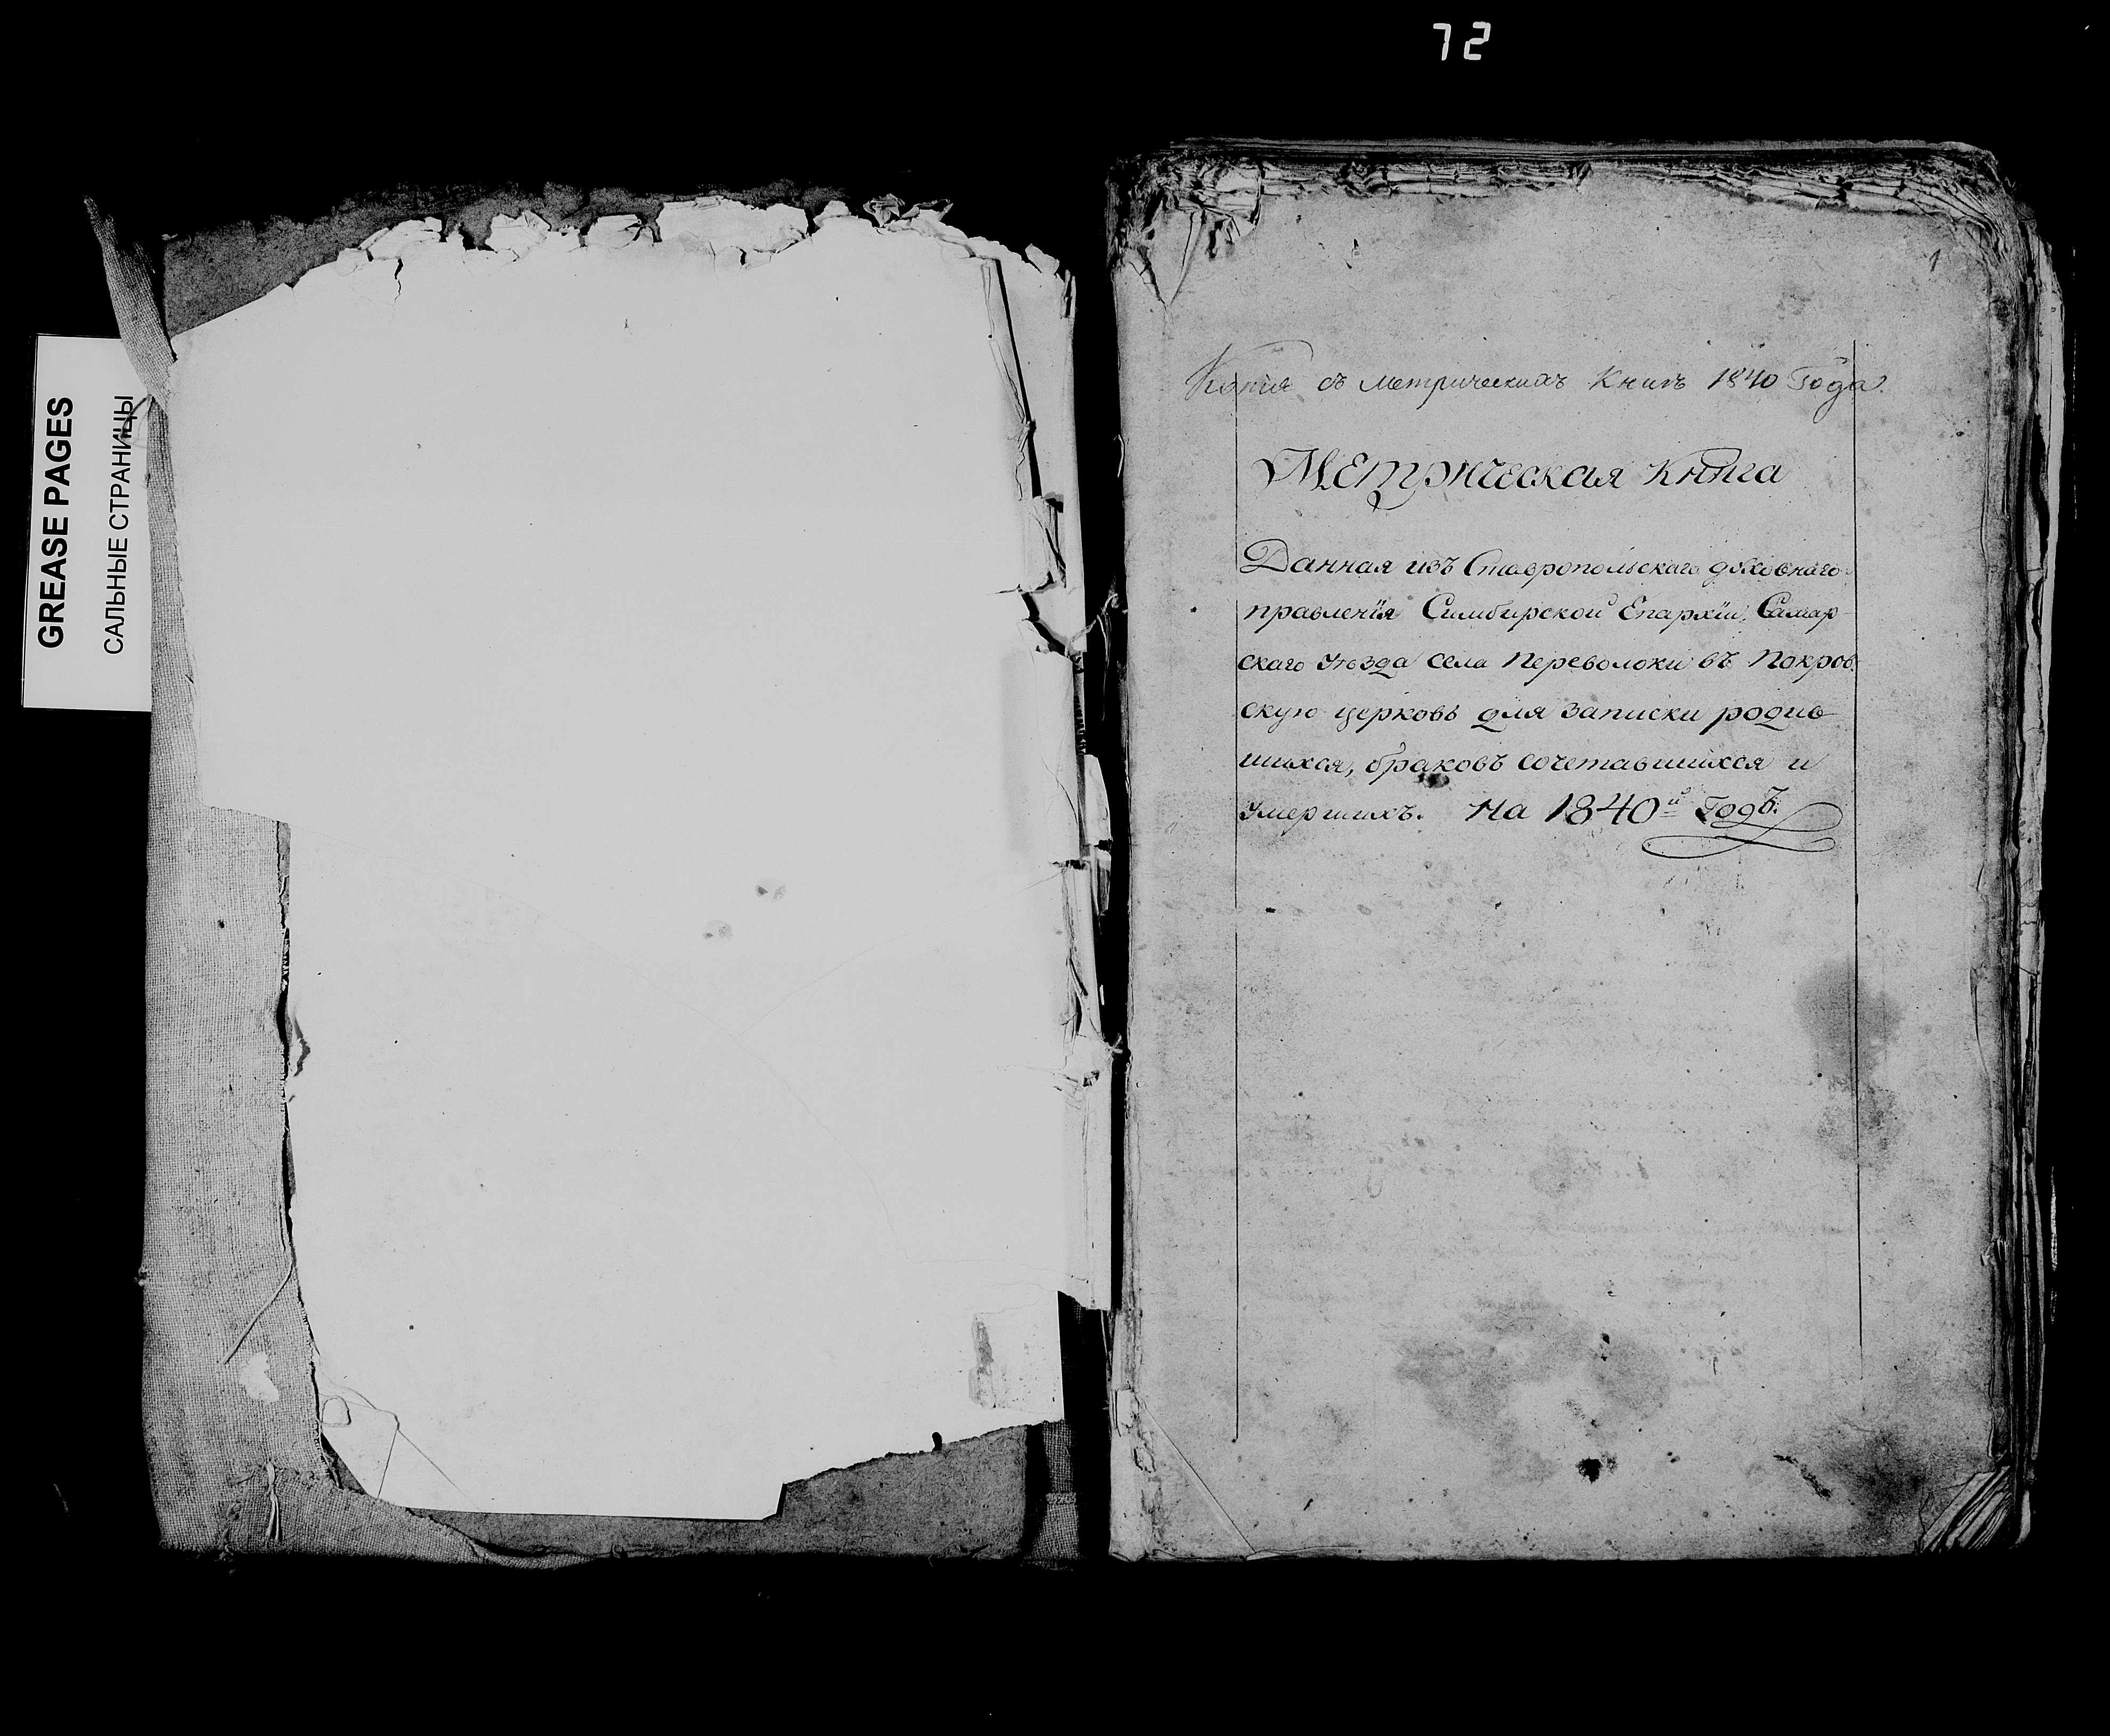 72
GREASE PAGES
САЛЬНЫЕ СТРАНИЦЫ
1
Копія съ метрическихъ книгъ 1840 Года.
Метрическая книга
Данная изъ Ставропольскаго духовнаго
правленія Симбирской Епархіи, Самар-
скаго уѣзда села Переволоки въ Покров-
скую церковь для записки родив-
шихся, браковъ сочетавшихся и
умершихъ. на 1840й Годъ.